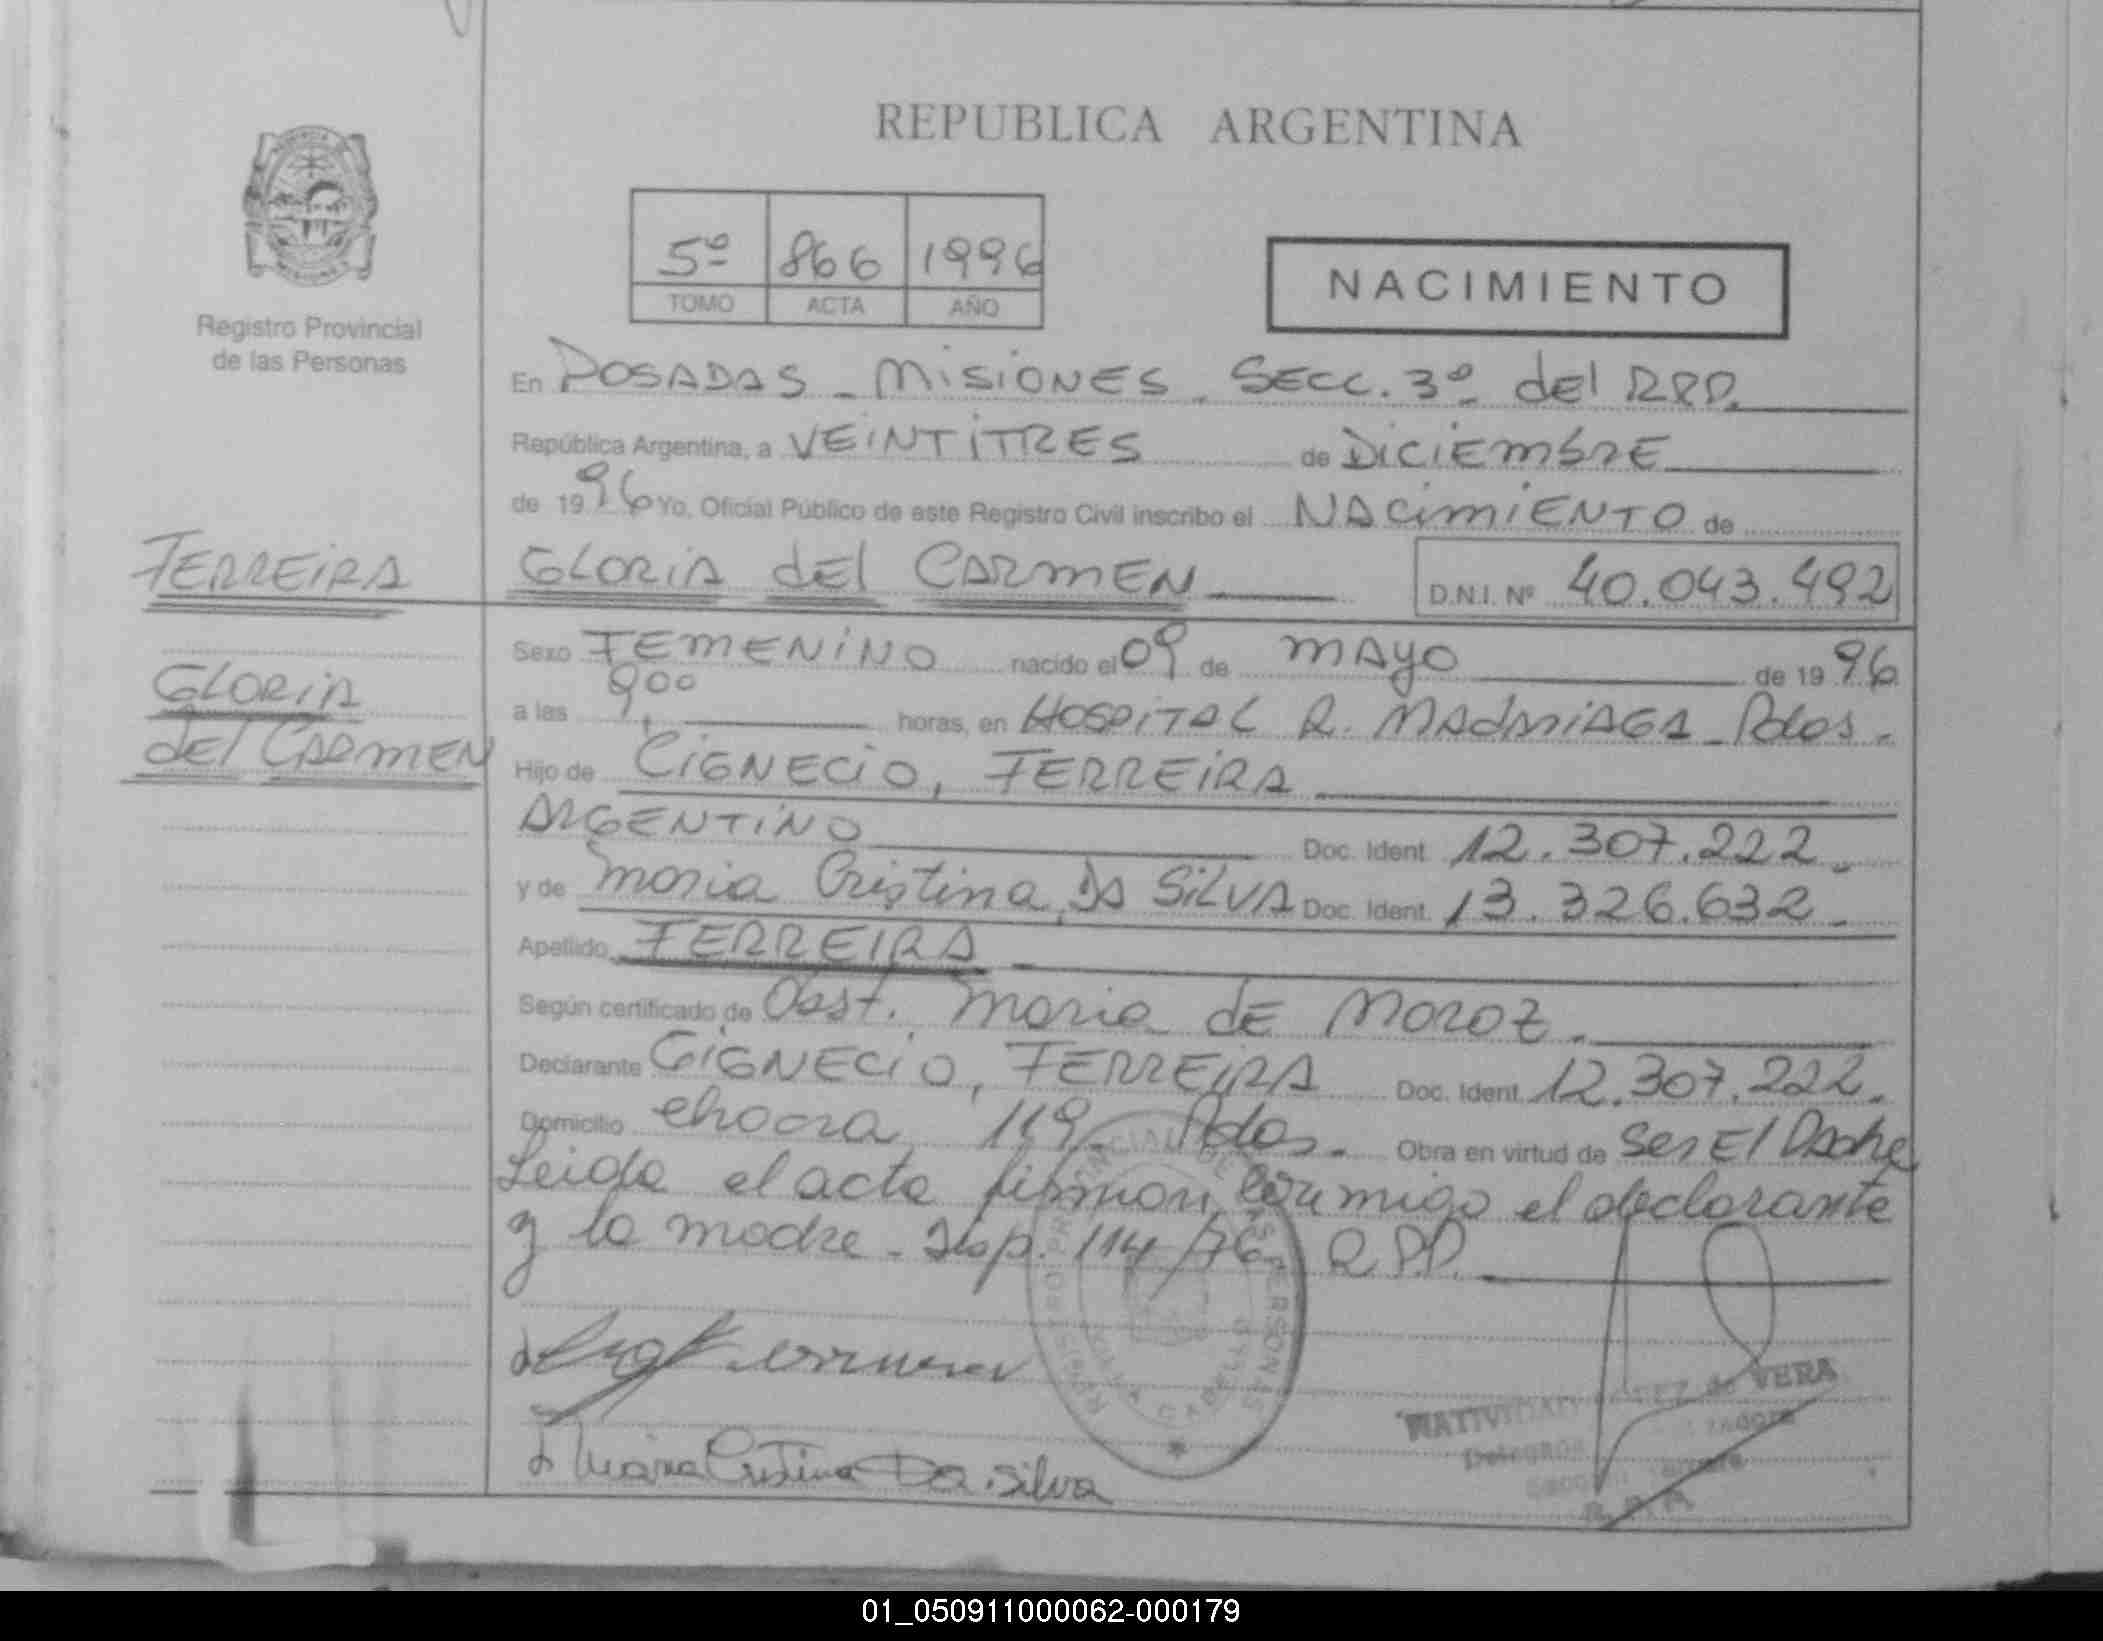 REPUBLICA ARGENTINA
5º 866 1996
TOMO ACTA AÑO
NACIMIENTO
Registro Provincial
de las Personas
En POSADAS - MISIONES - SECC. 3º del RPP.
República Argentina, a VEINTITRES de DICIEMBRE
de 1996 Yo, Oficial Público de este Registro Civil inscribo el NACIMIENTO de
FERREIRA
GLORIA del CARMEN D.N.I. Nº 40.043.492
Sexo FEMENINO nacido el 09 de MAYO de 1996
GLORIA
del CARMEN
a las 9,00 horas, en HOSPITAL R. MADARIAGA - Pdas.
Hijo de CIGNECIO, FERREIRA
ARGENTINO Doc. Ident. 12.307.222.
y de Maria Cristina, DA SILVA Doc. Ident. 13.326.632.
Apellido FERREIRA
Según certificado de Obst. Maria de MOROZ.
Declarante CIGNECIO, FERREIRA Doc. Ident. 12.307.222.
Domicilio 119 - Pdas. Obra en virtud de Ser El Padre
Leida el acta firman conmigo el declarante
y la madre. Disp. 114/76 R.P.P.
Maria Cristina Da Silva
REGISTRO PROVINCIAL DE LAS PERSONAS
de VERA
01_050911000062-000179